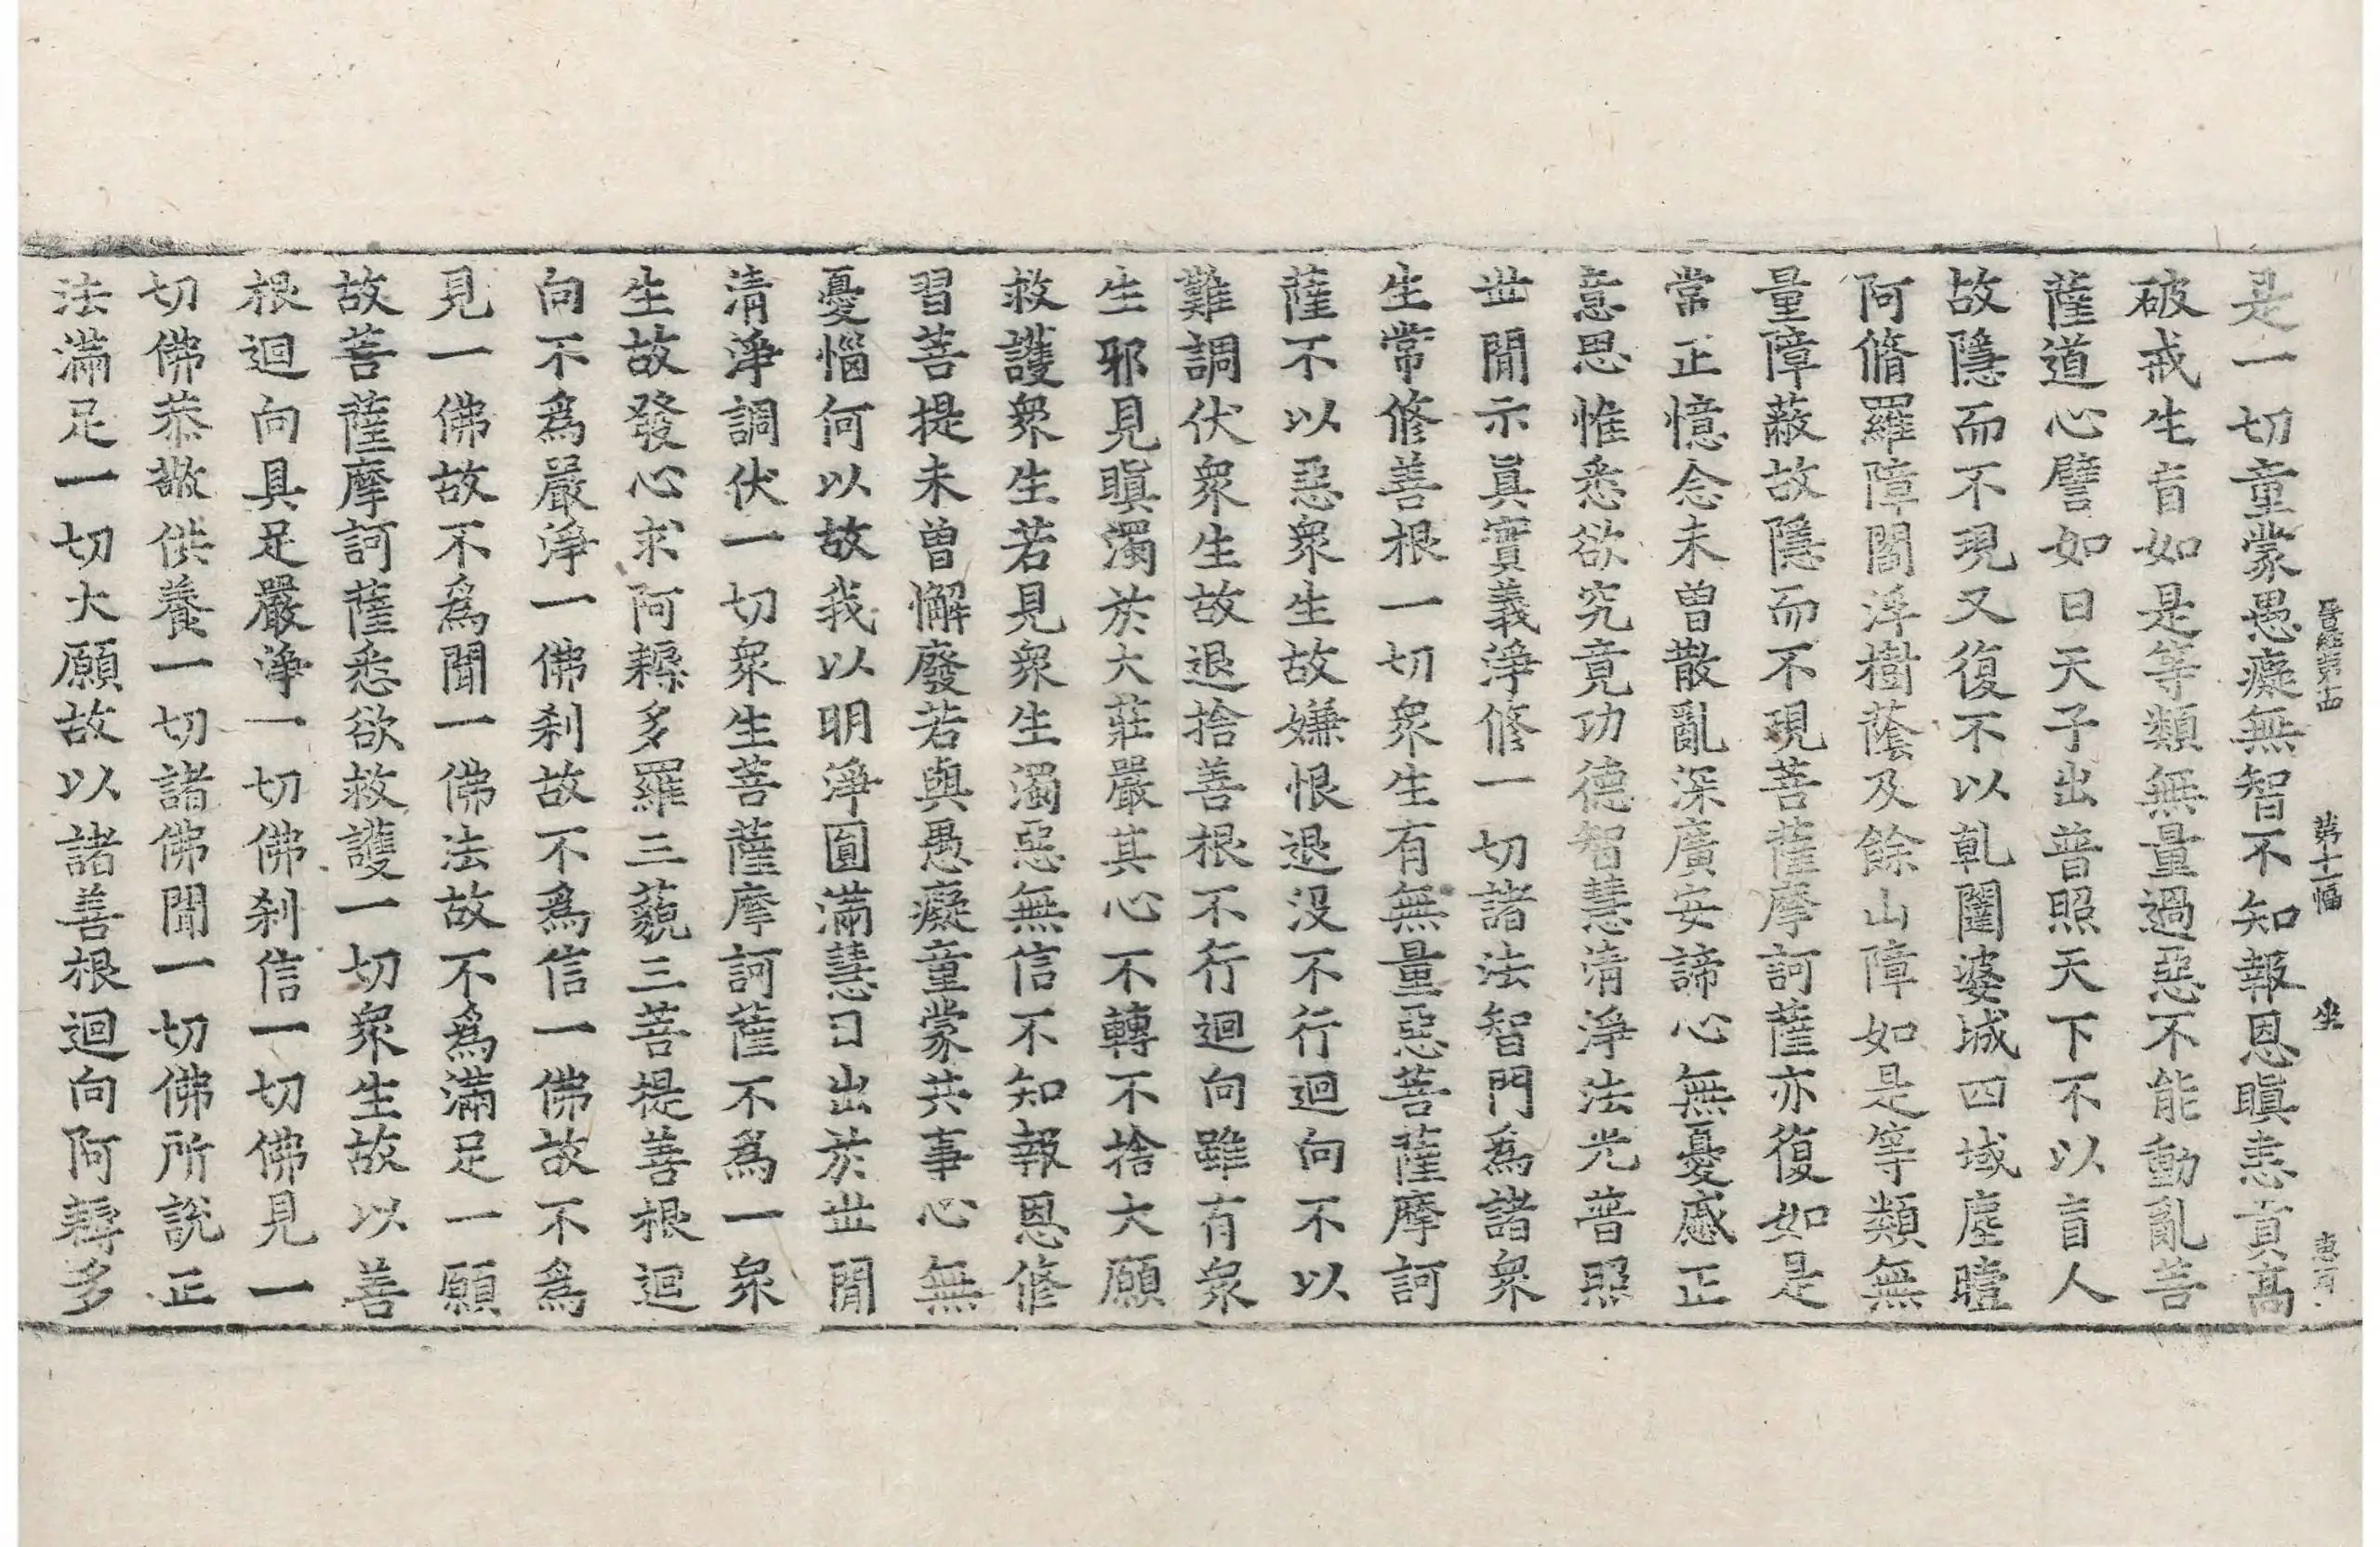 晉經第十四 第十二幅 坐
是一切童蒙愚癡無智不知報恩瞋恚貢高
破戒生盲如是等類無量過惡不能動亂菩
薩道心譬如日天子出普照天下不以盲人
故隱而不現又復不以乹闥婆城四域塵曀
阿脩羅障閻浮樹蔭及餘山障如是等類無
量障蔽故隱而不現菩薩摩訶薩亦復如是
常正憶念未曾散亂深廣安諦心無憂慼正
意思惟悉欲究竟功德智慧清淨法光普照
世閒示眞實義淨修一切諸法智門爲諸衆
生常修善根一切衆生有無量惡菩薩摩訶
薩不以惡衆生故嫌恨退没不行迴向不以
難調伏衆生故退捨善根不行迴向雖有衆
生邪見瞋濁於大莊嚴其心不轉不捨大願
救護衆生若見衆生濁惡無信不知報恩修
習菩提未曾懈廢若與愚癡童蒙共事心無
憂惱何以故我以明淨圓滿慧日出於世閒
清淨調伏一切衆生菩薩摩訶薩不爲一衆
生故發心求阿耨多羅三藐三菩提善根迴
向不爲嚴淨一佛刹故不爲信一佛故不爲
見一佛故不爲聞一佛法故不爲滿足一願
故菩薩摩訶薩悉欲救護一切衆生故以善
根迴向具足嚴淨一切佛刹信一切佛見一
切佛恭敬供養一切諸佛聞一切佛所說正
法滿足一切大願故以諸善根迴向阿耨多